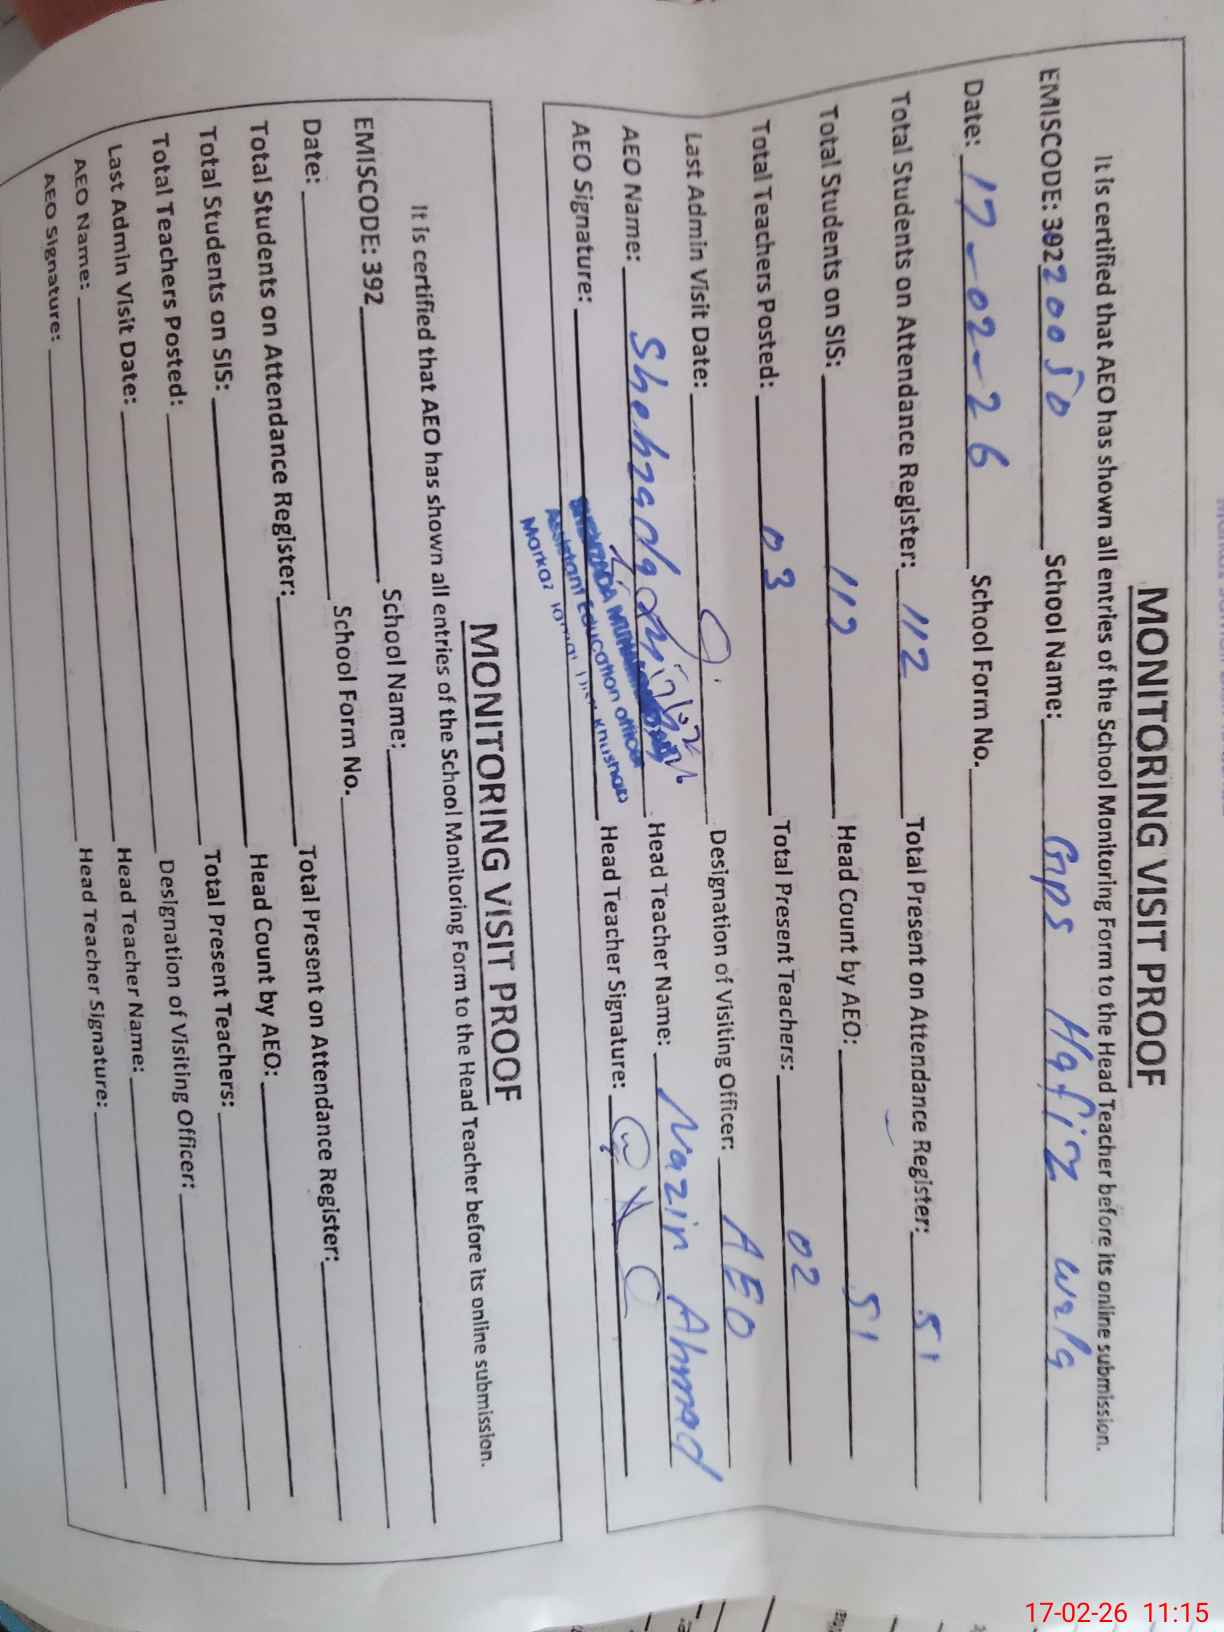 MONITORING VISIT PROOF
It is certified that AEO has shown all entries of the School Monitoring Form to the Head Teacher before its online submission.
EMISCODE: 39220050 School Name: GPS Hafiz wala
Date: 17-02-26 School Form No.
Total Students on Attendance Register: 112 Total Present on Attendance Register: 51
Total Students on SIS: 112 Head Count by AEO: 51
Total Teachers Posted: 03 Total Present Teachers: 02
Last Admin Visit Date: Designation of Visiting Officer: AEO
AEO Name: Shehzada Head Teacher Name: Nazir Ahmad
AEO Signature: Head Teacher Signature:
SHEHZADA
Assistant Education Officer
Markaz Khushab
MONITORING VISIT PROOF
It is certified that AEO has shown all entries of the School Monitoring Form to the Head Teacher before its online submission.
EMISCODE: 392 School Name:
Date: School Form No.
Total Students on Attendance Register: Total Present on Attendance Register:
Total Students on SIS: Head Count by AEO:
Total Teachers Posted: Total Present Teachers:
Last Admin Visit Date: Designation of Visiting Officer:
AEO Name: Head Teacher Name:
AEO Signature: Head Teacher Signature:
17-02-26 11:15